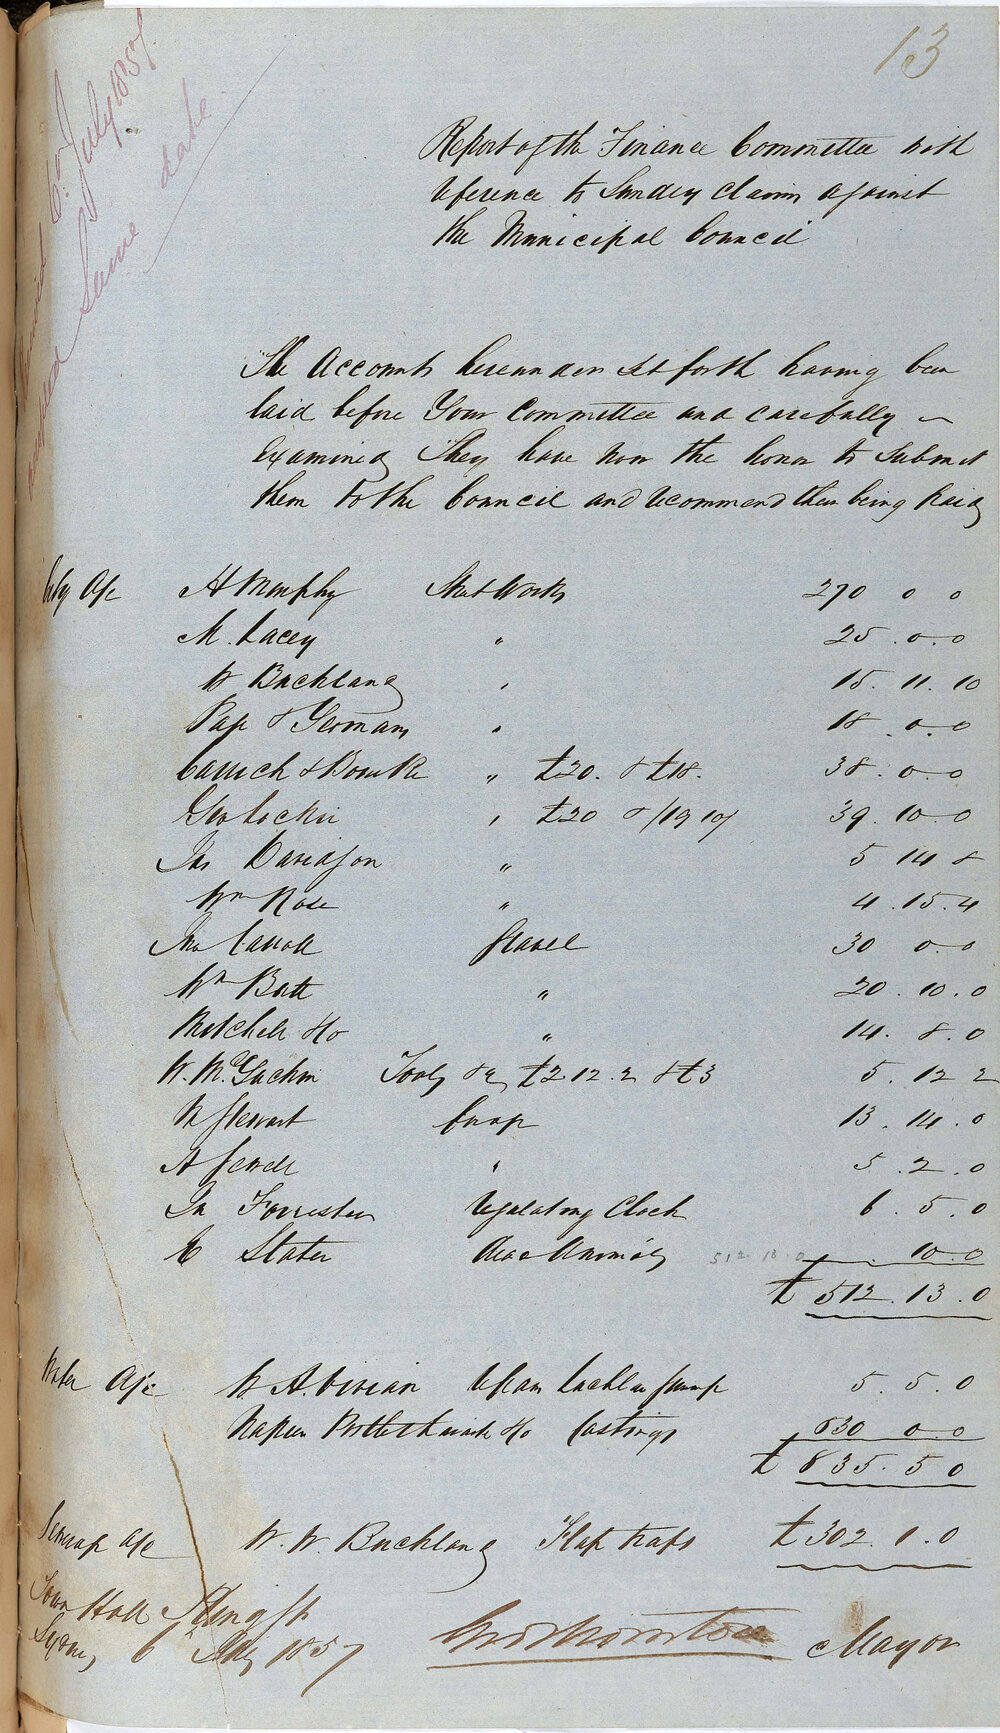 13
6th July 1857
same date
Report of the Finance Committee with
reference to Sundry Claims against
the Municipal Council
The Accounts hereunder set forth having been
laid before Your Committee and carefully
Examined They have now the honor to submit
them to the Council and recommend their being Paid
City A/c H Murphy Street Works 270 0 0
M. Lacey " 25.0.0
W Buckland " 15.11.10
Pap & Germans " 18.0.0
Carrick & Bourke " £20. & £18. 38.0.0
Geo Lockie " £20 & /19 10/ 39.10.0
Jas Davidson " 5 14 8
Wm Rose " 4.15.4
Jno Carroll Gravel 30 0 0
Wm Batt " 20.10.0
Mitchell & Co " 14.8.0
W. McGuckin Tools &c £2 12.2 & £3 5.12 2
Stewart 13.14.0
A Sewell " 5.2.0
Jn Forrester regulating Clock 6.5.0
E Slater Dead Animals 512 13 0 10.0
£ 512.13.0
Water A/c W A. Vivian Lachlan Swamp 5.5.0
& Co Castings 830 0 0
£ 835.5 0
Sewerage A/c W. W. Buckland Flap traps £302.1.0
Town Hall King St
Sydney 6th July 1857 Geo Thornton Mayor